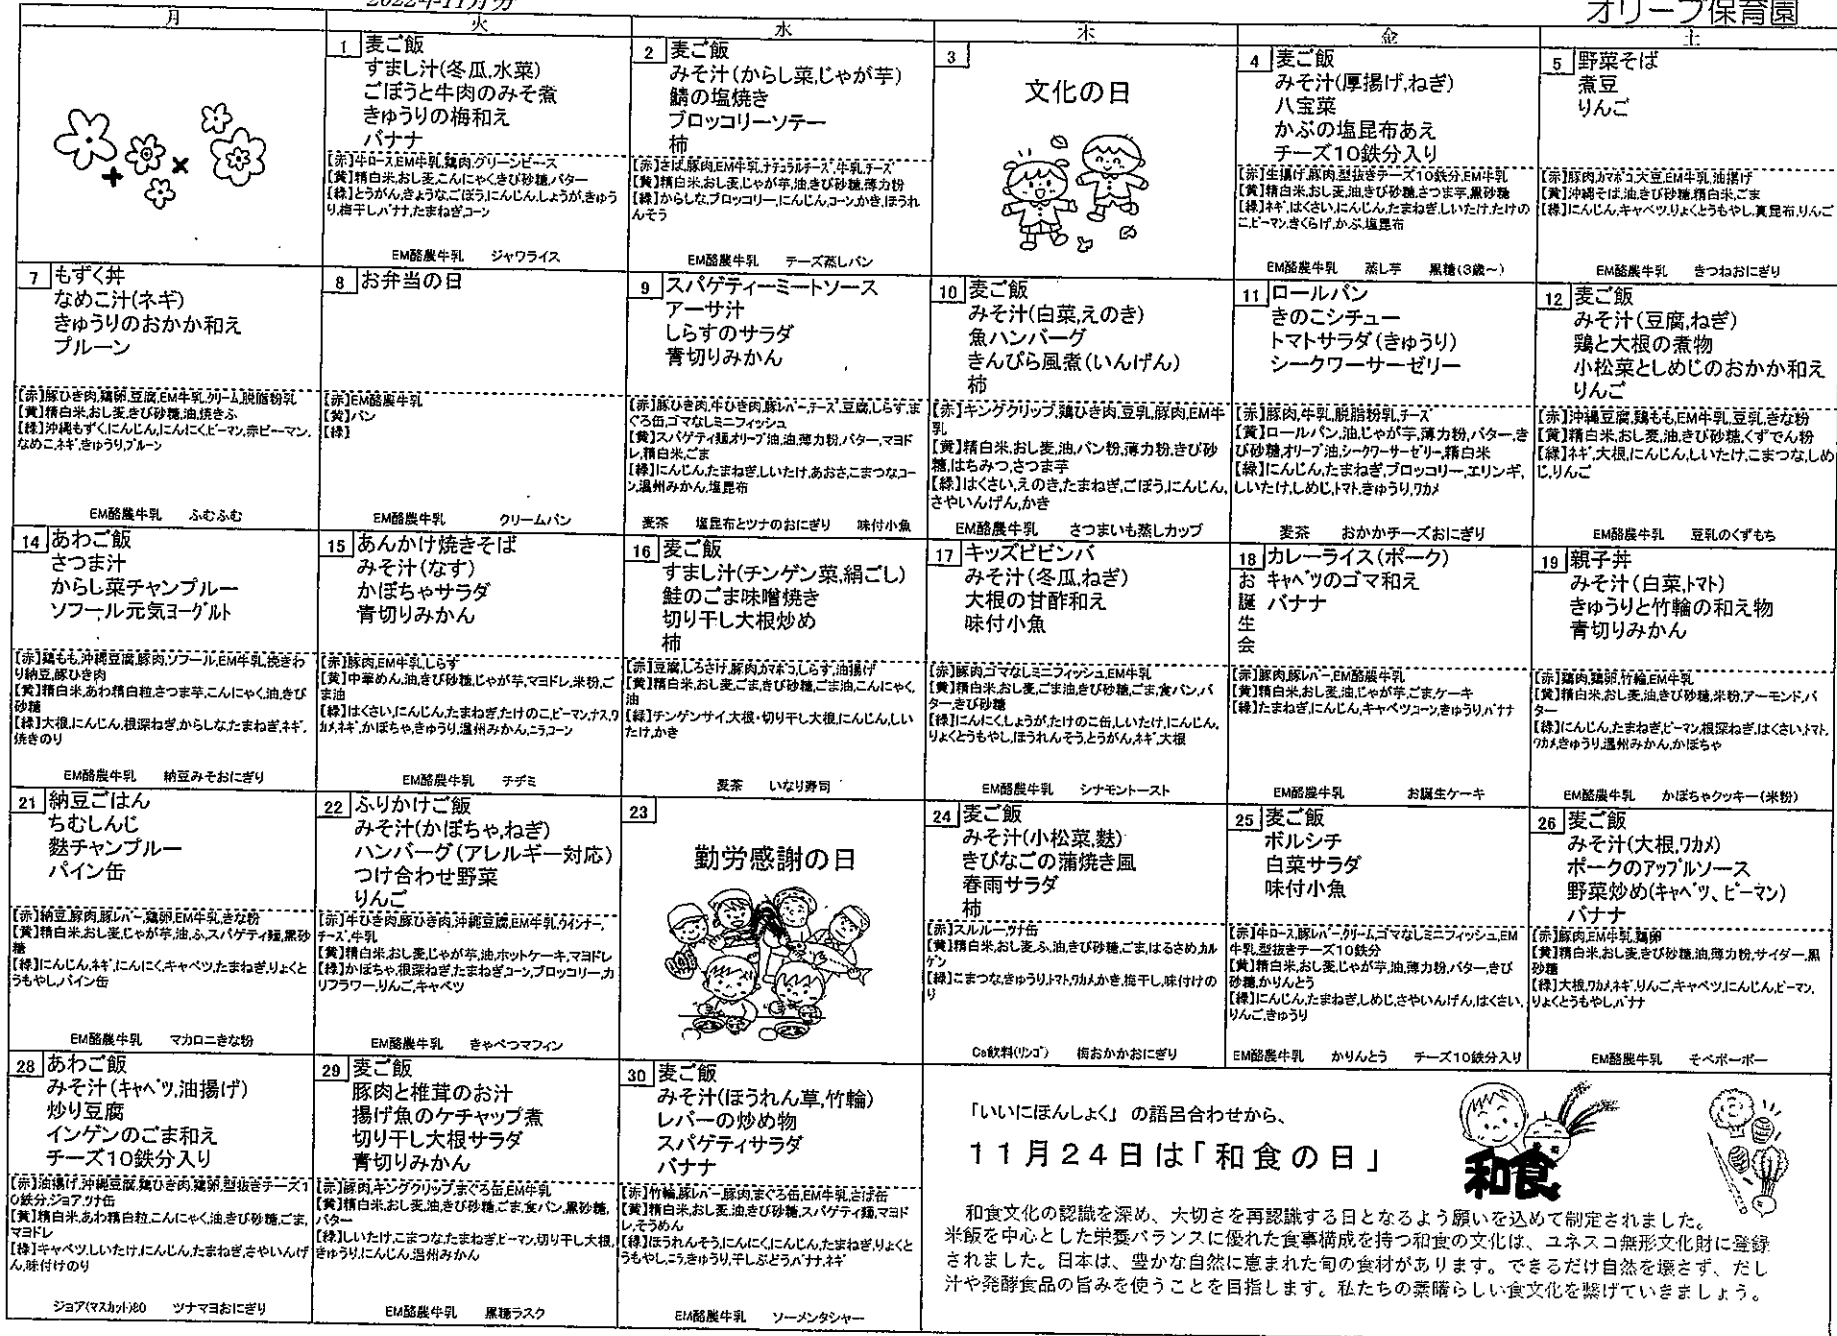 2022年11月分
オリーブ保育園
月 火 水 木 金 土
1 麦ご飯
すまし汁(冬瓜,水菜)
ごぼうと牛肉のみそ煮
きゅうりの梅和え
バナナ
【赤】牛ロース,EM牛乳,鶏肉,グリーンピース
【黄】精白米,おし麦,こんにゃく,きび砂糖,バター
【緑】とうがん,きょうな,ごぼう,にんじん,しょうが,きゅう
り,梅干し,バナナ,たまねぎ,コーン
EM酪農牛乳 ジャワライス
2 麦ご飯
みそ汁(からし菜,じゃが芋)
鯖の塩焼き
ブロッコリーソテー
柿
【赤】さば,豚肉,EM牛乳,ナチュラルチーズ,牛乳,チーズ
【黄】精白米,おし麦,じゃが芋,油,きび砂糖,薄力粉
【緑】からしな,ブロッコリー,にんじん,コーン,かき,ほうれ
んそう
EM酪農牛乳 チーズ蒸しパン
3
文化の日
4 麦ご飯
みそ汁(厚揚げ,ねぎ)
八宝菜
かぶの塩昆布あえ
チーズ10鉄分入り
【赤】生揚げ,豚肉,型抜きチーズ10鉄分,EM牛乳
【黄】精白米,おし麦,油,きび砂糖,さつま芋,黒砂糖
【緑】ネギ,はくさい,にんじん,たまねぎ,しいたけ,たけの
こ,ピーマン,きくらげ,かぶ,塩昆布
EM酪農牛乳 蒸し芋 黒糖(3歳~)
5 野菜そば
煮豆
りんご
【赤】豚肉,カマボコ,大豆,EM牛乳,油揚げ
【黄】沖縄そば,油,きび砂糖,精白米,ごま
【緑】にんじん,キャベツ,りょくとうもやし,真昆布,りんご
EM酪農牛乳 きつねおにぎり
7 もずく丼
なめこ汁(ネギ)
きゅうりのおかか和え
プルーン
【赤】豚ひき肉,鶏卵,豆腐,EM牛乳,クリーム,脱脂粉乳
【黄】精白米,おし麦,きび砂糖,油,焼きふ
【緑】沖縄もずく,にんじん,にんにく,ピーマン,赤ピーマン,
なめこ,ネギ,きゅうり,プルーン
EM酪農牛乳 ふむふむ
8 お弁当の日
【赤】EM酪農牛乳
【黄】パン
【緑】
EM酪農牛乳 クリームパン
9 スパゲティーミートソース
アーサ汁
しらすのサラダ
青切りみかん
【赤】豚ひき肉,牛ひき肉,豚レバー,チーズ,豆腐,しらす,ま
ぐろ缶,ゴマなしミニフィッシュ
【黄】スパゲティ麺,オリーブ油,油,薄力粉,バター,マヨド
レ,精白米,ごま
【緑】にんじん,たまねぎ,しいたけ,あおさ,こまつな,コー
ン,温州みかん,塩昆布
麦茶 塩昆布とツナのおにぎり 味付小魚
10 麦ご飯
みそ汁(白菜,えのき)
魚ハンバーグ
きんぴら風煮(いんげん)
柿
【赤】キングクリップ,鶏ひき肉,豆乳,豚肉,EM牛
乳
【黄】精白米,おし麦,油,パン粉,薄力粉,きび砂
糖,はちみつ,さつま芋
【緑】はくさい,えのき,たまねぎ,ごぼう,にんじん,
さやいんげん,かき
EM酪農牛乳 さつまいも蒸しカップ
11 ロールパン
きのこシチュー
トマトサラダ(きゅうり)
シークワーサーゼリー
【赤】豚肉,牛乳,脱脂粉乳,チーズ
【黄】ロールパン,油,じゃが芋,薄力粉,バター,き
び砂糖,オリーブ油,シークワーサーゼリー,精白米
【緑】にんじん,たまねぎ,ブロッコリー,エリンギ,
しいたけ,しめじ,トマト,きゅうり,ワカメ
麦茶 おかかチーズおにぎり
12 麦ご飯
みそ汁(豆腐,ねぎ)
鶏と大根の煮物
小松菜としめじのおかか和え
りんご
【赤】沖縄豆腐,鶏もも,EM牛乳,豆乳,きな粉
【黄】精白米,おし麦,油,きび砂糖,くずでん粉
【緑】ネギ,大根,にんじん,しいたけ,こまつな,しめ
じ,りんご
EM酪農牛乳 豆乳のくずもち
14 あわご飯
さつま汁
からし菜チャンプルー
ソフール元気ヨーグルト
【赤】鶏もも,沖縄豆腐,豚肉,ソフール,EM牛乳,挽きわ
り納豆,豚ひき肉
【黄】精白米,あわ精白粒,さつま芋,こんにゃく,油,きび
砂糖
【緑】大根,にんじん,根深ねぎ,からしな,たまねぎ,ネギ,
焼きのり
EM酪農牛乳 納豆みそおにぎり
15 あんかけ焼きそば
みそ汁(なす)
かぼちゃサラダ
青切りみかん
【赤】豚肉,EM牛乳,しらす
【黄】中華めん,油,きび砂糖,じゃが芋,マヨドレ,米粉,ご
ま油
【緑】はくさい,にんじん,たまねぎ,たけのこ,ピーマン,ナス,ワ
カメ,ネギ,かぼちゃ,きゅうり,温州みかん,ニラ,コーン
EM酪農牛乳 チヂミ
16 麦ご飯
すまし汁(チンゲン菜,絹ごし)
鮭のごま味噌焼き
切り干し大根炒め
柿
【赤】豆腐,しろさけ,豚肉,カマボコ,しらす,油揚げ
【黄】精白米,おし麦,ごま,きび砂糖,ごま油,こんにゃく,
油
【緑】チンゲンサイ,大根・切り干し大根,にんじん,しい
たけ,かき
麦茶 いなり寿司
17 キッズビビンバ
みそ汁(冬瓜,ねぎ)
大根の甘酢和え
味付小魚
【赤】豚肉,ゴマなしミニフィッシュ,EM牛乳
【黄】精白米,おし麦,ごま油,きび砂糖,ごま,食パン,バ
ター,きび砂糖
【緑】にんにく,しょうが,たけのこ缶,しいたけ,にんじん,
りょくとうもやし,ほうれんそう,とうがん,ネギ,大根
EM酪農牛乳 シナモントースト
18 カレーライス(ポーク)
お誕生会
キャベツのゴマ和え
バナナ
【赤】豚肉,豚レバー,EM酪農牛乳
【黄】精白米,おし麦,油,じゃが芋,ごま,ケーキ
【緑】たまねぎ,にんじん,キャベツ,コーン,きゅうり,バナナ
EM酪農牛乳 お誕生ケーキ
19 親子丼
みそ汁(白菜,トマト)
きゅうりと竹輪の和え物
青切りみかん
【赤】鶏肉,鶏卵,竹輪,EM牛乳
【黄】精白米,おし麦,油,きび砂糖,米粉,アーモンド,バ
ター
【緑】にんじん,たまねぎ,ピーマン,根深ねぎ,はくさい,トマト,
ワカメ,きゅうり,温州みかん,かぼちゃ
EM酪農牛乳 かぼちゃクッキー(米粉)
21 納豆ごはん
ちむしんじ
麩チャンプルー
パイン缶
【赤】納豆,豚肉,豚レバー,鶏卵,EM牛乳,きな粉
【黄】精白米,おし麦,じゃが芋,油,ふ,スパゲティ麺,黒砂
糖
【緑】にんじん,ネギ,にんにく,キャベツ,たまねぎ,りょくと
うもやし,パイン缶
EM酪農牛乳 マカロニきな粉
22 ふりかけご飯
みそ汁(かぼちゃ,ねぎ)
ハンバーグ(アレルギー対応)
つけ合わせ野菜
りんご
【赤】牛ひき肉,豚ひき肉,沖縄豆腐,EM牛乳,ウインナー,
チーズ,牛乳
【黄】精白米,おし麦,じゃが芋,油,ホットケーキ,マヨドレ
【緑】かぼちゃ,根深ねぎ,たまねぎ,コーン,ブロッコリー,カ
リフラワー,りんご,キャベツ
EM酪農牛乳 きゃべつマフィン
23
勤労感謝の日
24 麦ご飯
みそ汁(小松菜,麩)
きびなごの蒲焼き風
春雨サラダ
柿
【赤】スルルー,ツナ缶
【黄】精白米,おし麦,ふ,油,きび砂糖,ごま,はるさめ,カル
ゲン
【緑】こまつな,きゅうり,トマト,ワカメ,かき,梅干し,味付けの
り
Ca飲料(リンゴ) 梅おかかおにぎり
25 麦ご飯
ボルシチ
白菜サラダ
味付小魚
【赤】牛ロース,豚レバー,クリーム,ゴマなしミニフィッシュ,EM
牛乳,型抜きチーズ10鉄分
【黄】精白米,おし麦,じゃが芋,油,薄力粉,バター,きび
砂糖,かりんとう
【緑】にんじん,たまねぎ,しめじ,さやいんげん,はくさい,
りんご,きゅうり
EM酪農牛乳 かりんとう チーズ10鉄分入り
26 麦ご飯
みそ汁(大根,ワカメ)
ポークのアップルソース
野菜炒め(キャベツ、ピーマン)
バナナ
【赤】豚肉,EM牛乳,鶏卵
【黄】精白米,おし麦,きび砂糖,油,薄力粉,サイダー,黒
砂糖
【緑】大根,ワカメ,ネギ,りんご,キャベツ,にんじん,ピーマン,
りょくとうもやし,バナナ
EM酪農牛乳 そべボーボー
28 あわご飯
みそ汁(キャベツ,油揚げ)
炒り豆腐
インゲンのごま和え
チーズ10鉄分入り
【赤】油揚げ,沖縄豆腐,鶏ひき肉,鶏卵,型抜きチーズ1
0鉄分,ジョア,ツナ缶
【黄】精白米,あわ精白粒,こんにゃく,油,きび砂糖,ごま,
マヨドレ
【緑】キャベツ,しいたけ,にんじん,たまねぎ,さやいんげ
ん,味付けのり
ジョア(マスカット)80 ツナマヨおにぎり
29 麦ご飯
豚肉と椎茸のお汁
揚げ魚のケチャップ煮
切り干し大根サラダ
青切りみかん
【赤】豚肉,キングクリップ,まぐろ缶,EM牛乳
【黄】精白米,おし麦,油,きび砂糖,ごま,食パン,黒砂糖,
バター
【緑】しいたけ,こまつな,たまねぎ,ピーマン,切り干し大根,
きゅうり,にんじん,温州みかん
EM酪農牛乳 黒糖ラスク
30 麦ご飯
みそ汁(ほうれん草,竹輪)
レバーの炒め物
スパゲティサラダ
バナナ
【赤】竹輪,豚レバー,豚肉,まぐろ缶,EM牛乳,さば缶
【黄】精白米,おし麦,油,きび砂糖,スパゲティ麺,マヨド
レ,そうめん
【緑】ほうれんそう,にんにく,にんじん,たまねぎ,りょくと
うもやし,ニラ,きゅうり,干しぶどう,バナナ,ネギ
EM酪農牛乳 ソーメンタシャー
「いいにほんしょく」の語呂合わせから、
11月24日は「和食の日」
和食
和食文化の認識を深め、大切さを再認識する日となるよう願いを込めて制定されました。
米飯を中心とした栄養バランスに優れた食事構成を持つ和食の文化は、ユネスコ無形文化財に登録
されました。日本は、豊かな自然に恵まれた旬の食材があります。できるだけ自然を壊さず、だし
汁や発酵食品の旨みを使うことを目指します。私たちの素晴らしい食文化を繋げていきましょう。